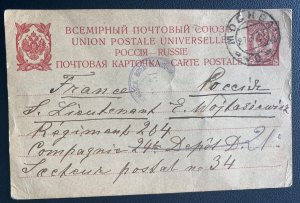 ВСЕМІРНЫЙ ПОЧТОВЫЙ СОЮЗЪ
UNION POSTALE UNIVERSELLE
РОССІЯ – RUSSIE
ПОЧТОВАЯ КАРТОЧКА – CARTE POSTALE
МОСКВА
France Россія
S. Lieutenant E. Wojtkasiewicz
Régiment 204
Compagnie 24e Depôt D. 21
Secteur postal no 34